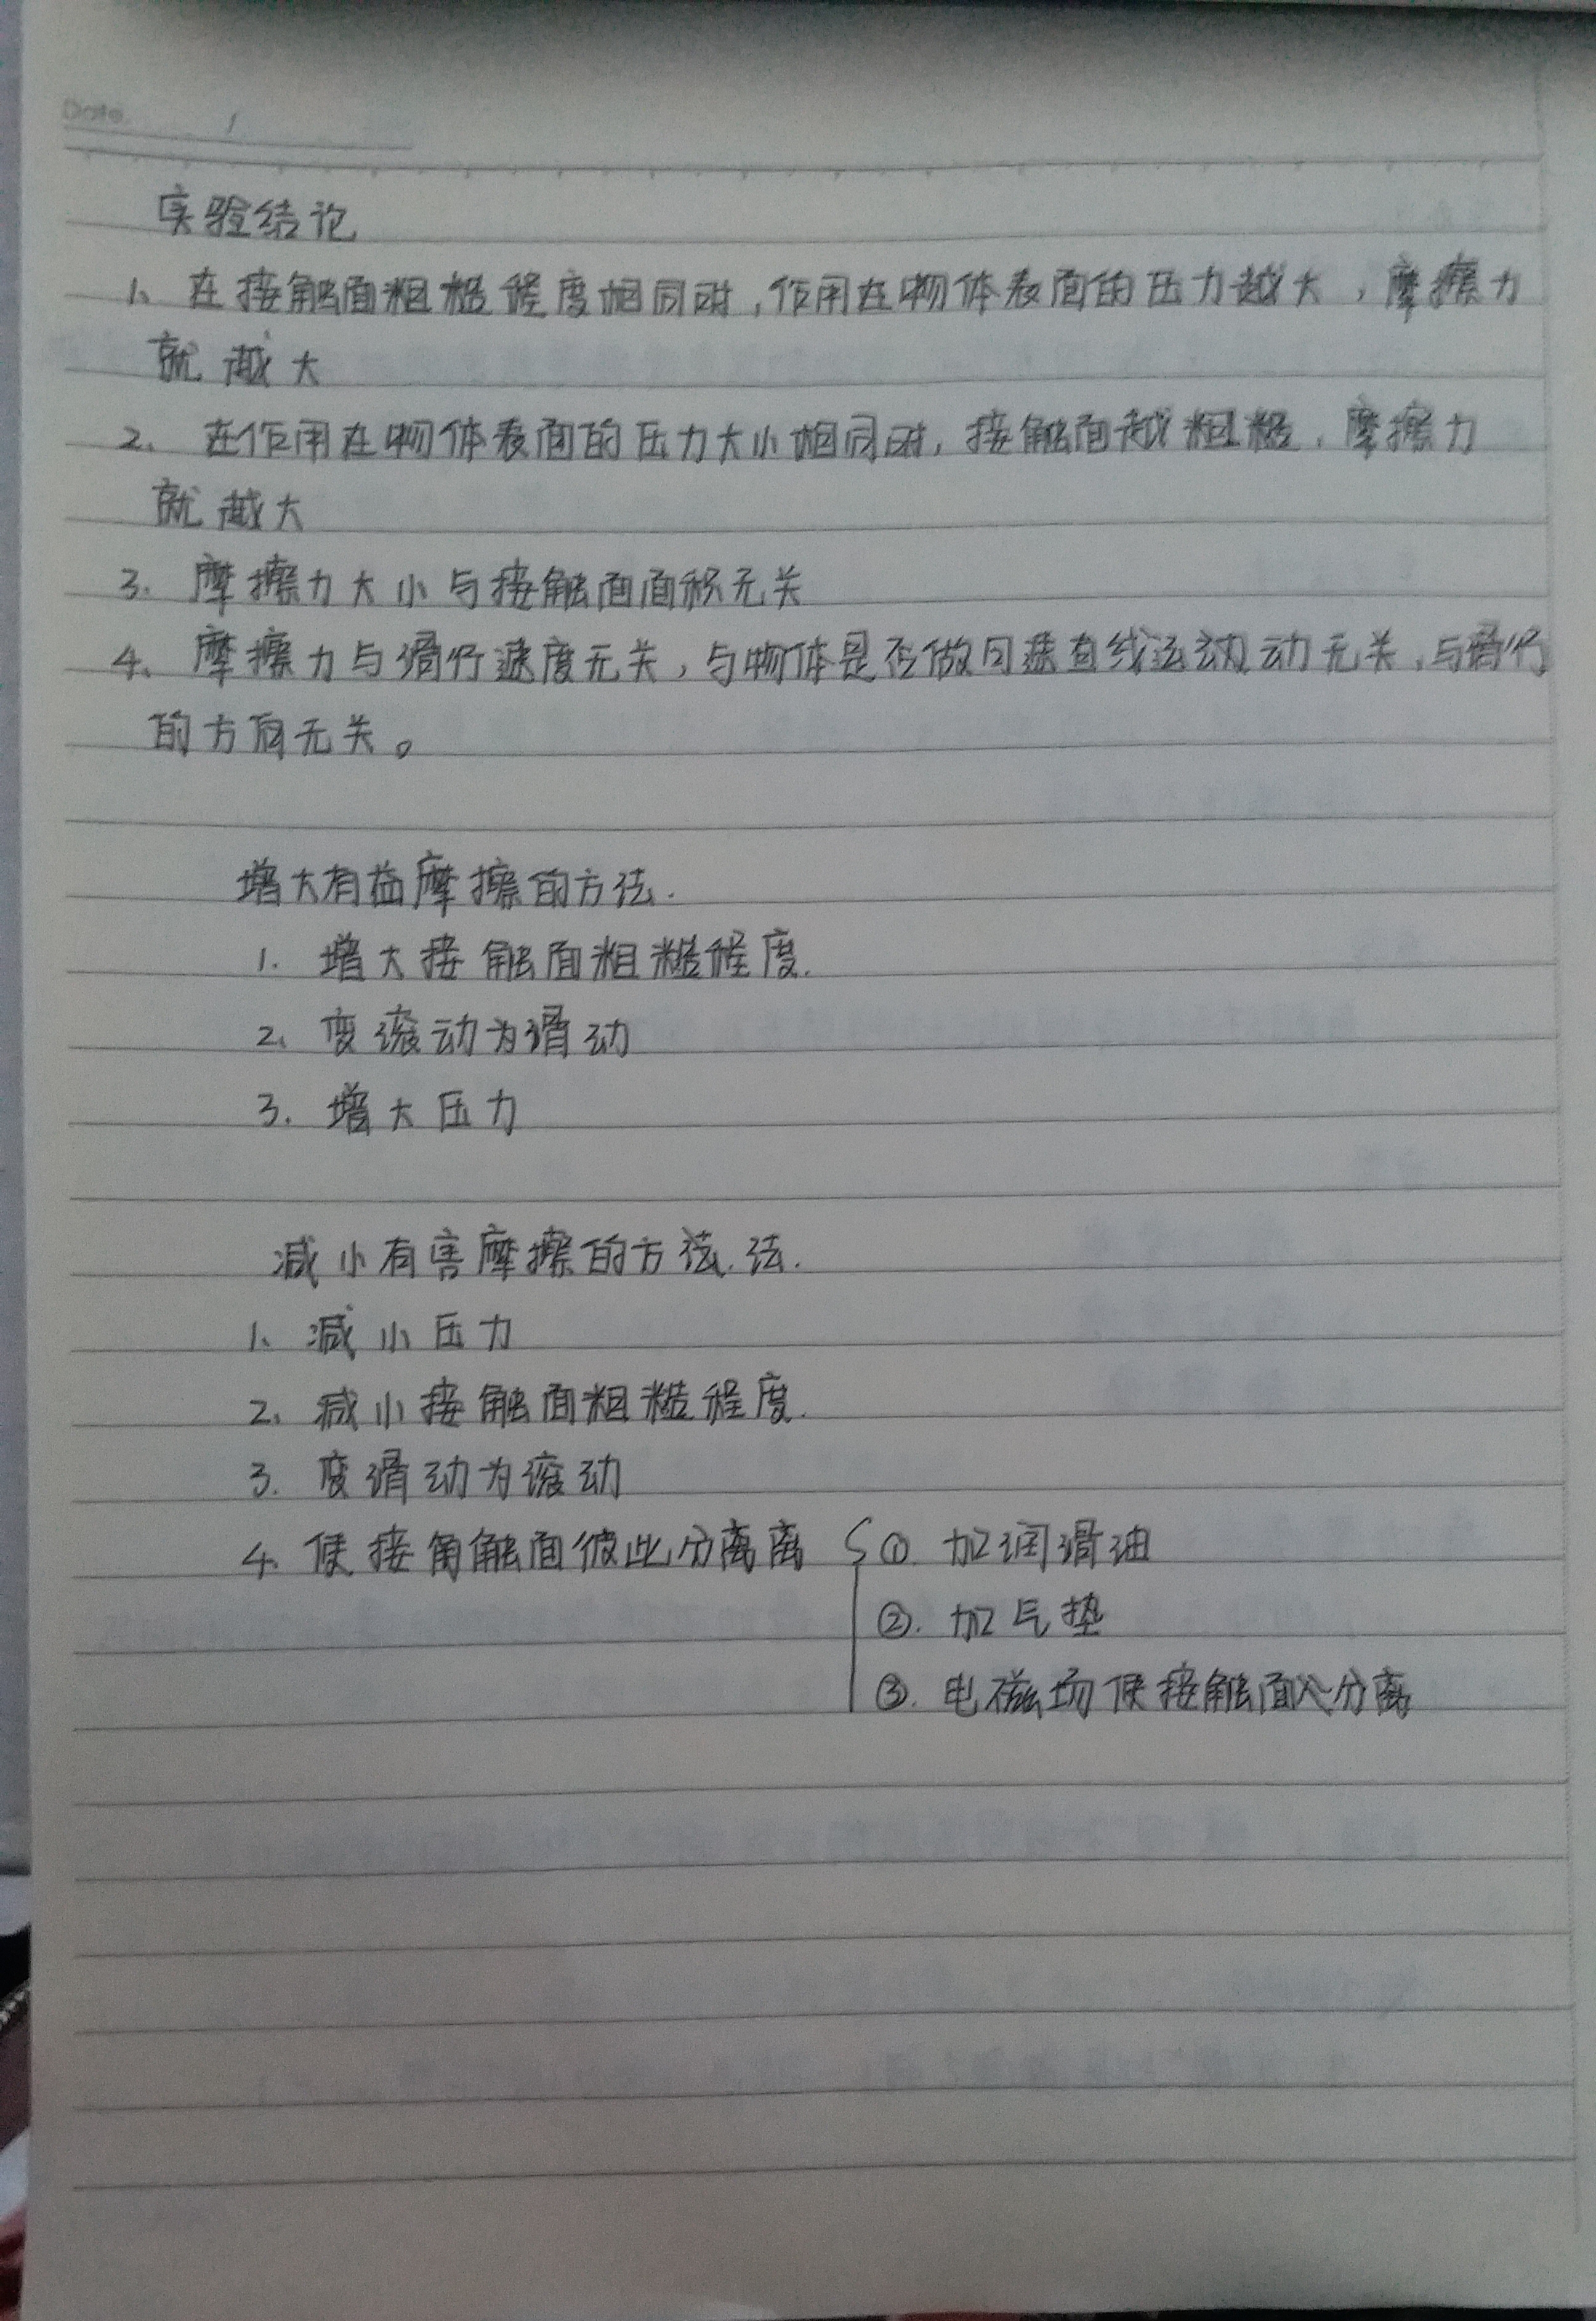 Date.      /
实验结论
1、在接触面粗糙程度相同时,作用在物体表面的压力越大,摩擦力
就越大
2、在作用在物体表面的压力大小相同时,接触面越粗糙,摩擦力
就越大
3.摩擦力大小与接触面面积无关
4、摩擦力与滑行速度无关,与物体是否做匀速直线运动动无关,与滑行
的方向无关。
增大有益摩擦的方法.
1.增大接触面粗糙程度.
2、变滚动为滑动
3.增大压力
减小有害摩擦的方法.法.
1、减小压力
2、减小接触面粗糙程度.
3.变滑动为滚动
4.使接角触面彼此分离离 { ①.加润滑油
②.加气垫
③.电磁场使接触面分离